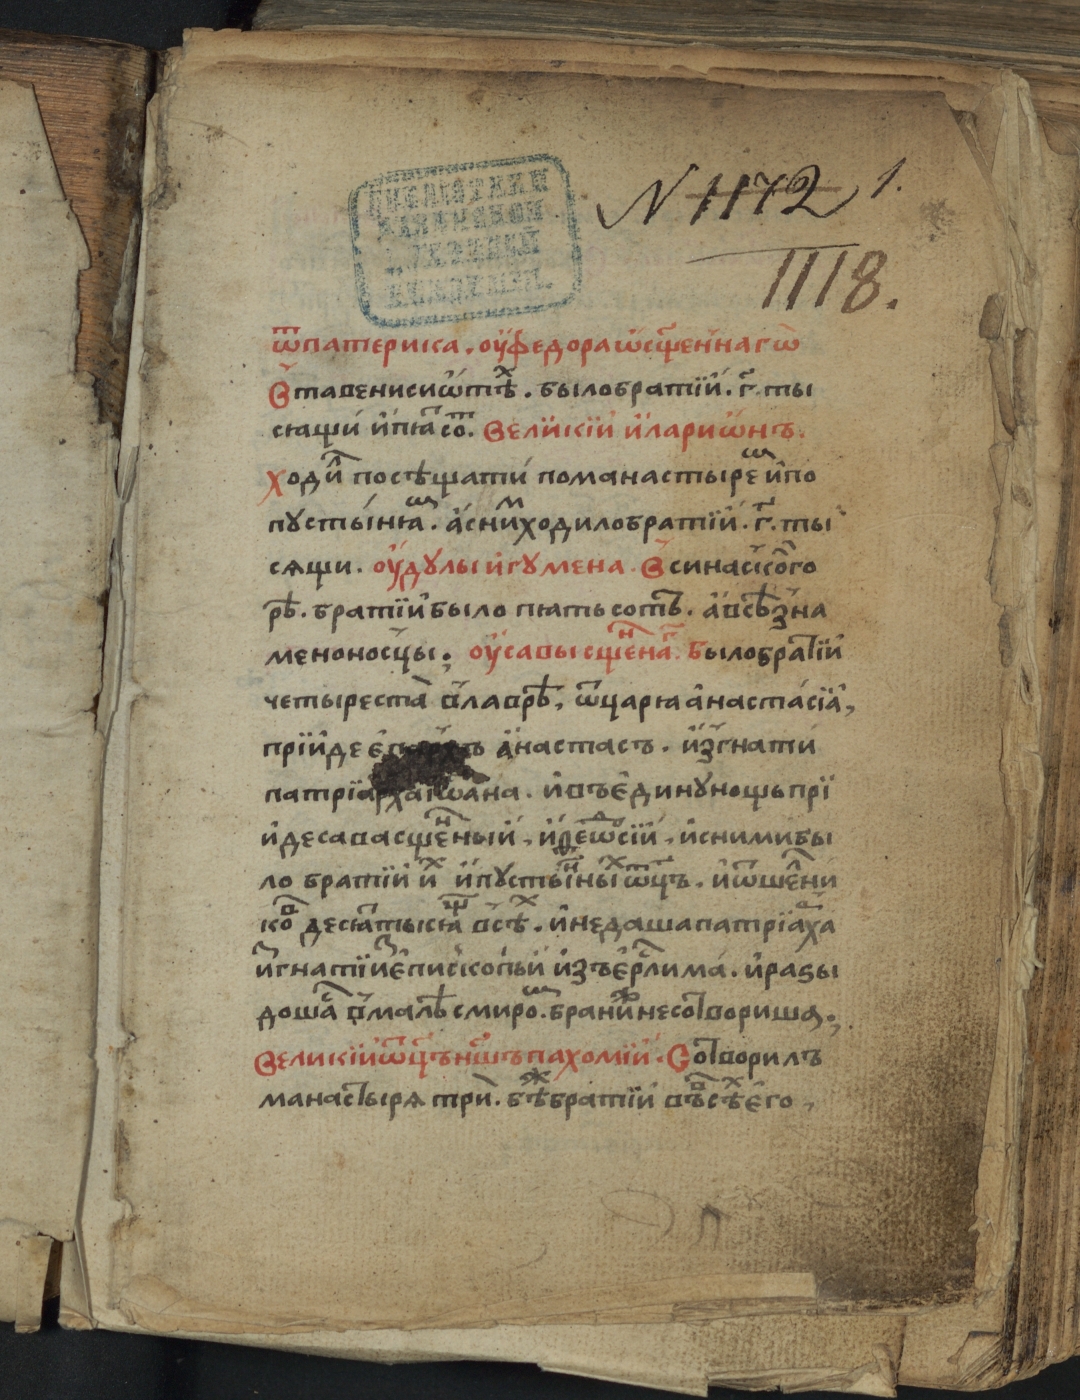 N 1172 1.
1118.
ѿпатерика. оуфедораѡсщ҃еннагѡ
втавенисиѡтѣх. былобратїй. г҃.ты
сѧщи ипѧⷮсоⷮ. Великїй илариѡнъ.
ходиⷧ посѣщати поманастыреⷨ ипо
пустынѧⷨ. аснимⷨходилобратїй. г҃.ты
сѧщи. оудулыигумена. Всинайского
рѣ. братїибыло пѧтьсотъ. авсѣзна
меноносцы. оусавысщ҃еннаⷢ. былобратїй
четыреста влаврѣ, ѿцарѧанастасїа,
прїиде анастасъ. изгнати
патрїархаіѡана. ивъединунощьпрї
идесавасщ҃енный, иснимибы
ло братїй иⷯ ипустынныⷯ ѿц҃ъ. иѡшелни
коⷡ десѧⷮтысѧщ всѣⷯ. инедашапатрїарха
игнатїиепископьи изъерⷭлима. иразы
дошаⷭ вмалѣсмироⷨ. браниⷤнесотвориша.
Великїйѿц҃ънш҃ъпахомїй. Сотворилъ
манастырѧ три. бѣⷤбратїй въсѣⷯего,